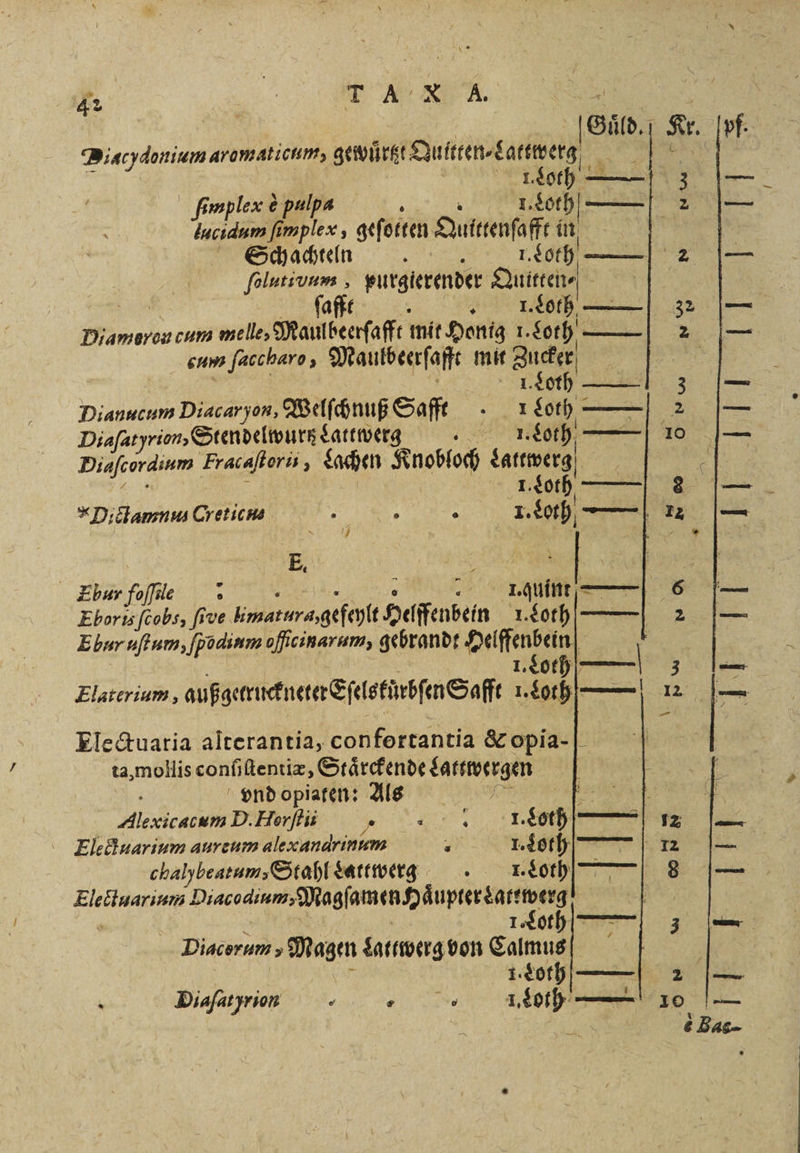 42
T A X A.
Guld. Kr. pf.
Diacydonium aromaticum, gewürtzt Quitten-Lattwerg
1.Loth —— 3 —
ſimplex è pulpa . . 1.Loth —— 2 —
lucidum ſimplex, geſotten Quittenſafft in
Schachteln . . 1.Loth —— 2 —
ſolutivum, purgierender Quitten-
ſafft . . 1.Loth —— 32 —
Diamoron cum melle, Maulbeerſafft mit Honig 1.Loth —— 2 —
cum ſaccharo, Maulbeerſafft mit Zucker
1.Loth —— 3 —
Dianucum Diacaryon, Welſchnuß Safft . 1 Loth —— 2 —
Diaſatyrion, Stendelwurtz Lattwerg . 1.Loth —— 10 —
Diaſcordium Fracaſtorii, Lachen Knobloch Lattwerg
1.Loth —— 8 —
*Dictamnus Creticus . . . 1.Loth —— 12 —
E.
Ebur foſſile . . . . 1.quint —— 6 —
Eboris ſcobs, ſive limatura, gefeylt Helffenbein 1.Loth —— 2 —
Ebur uſtum, ſpodium officinarum, gebrandt Helffenbein
1.Loth —— 3 —
Elaterium, auffgetruckneter Eſelskürbſen Safft 1.Loth —— 12 —
Electuaria alterantia, confortantia & opia-
ta, mollis conſiſtentiæ, Stärckende Lattwergen
vnd opiaten: Als
Alexicacum D. Horſtii . . . 1.Loth —— 12 —
Electuarium aureum alexandrinum . 1.Loth —— 12 —
chalybeatum, Stahl Lattwerg . 1.Loth —— 8 —
Electuarium Diacodium, Magſamen Häupter Lattwerg
1.Loth —— 3 —
Diacorum, Magen Lattwerg von Calmus
1.Loth —— 2 —
Diaſatyrion . . . 1.Loth —— 10 —
è Bac-